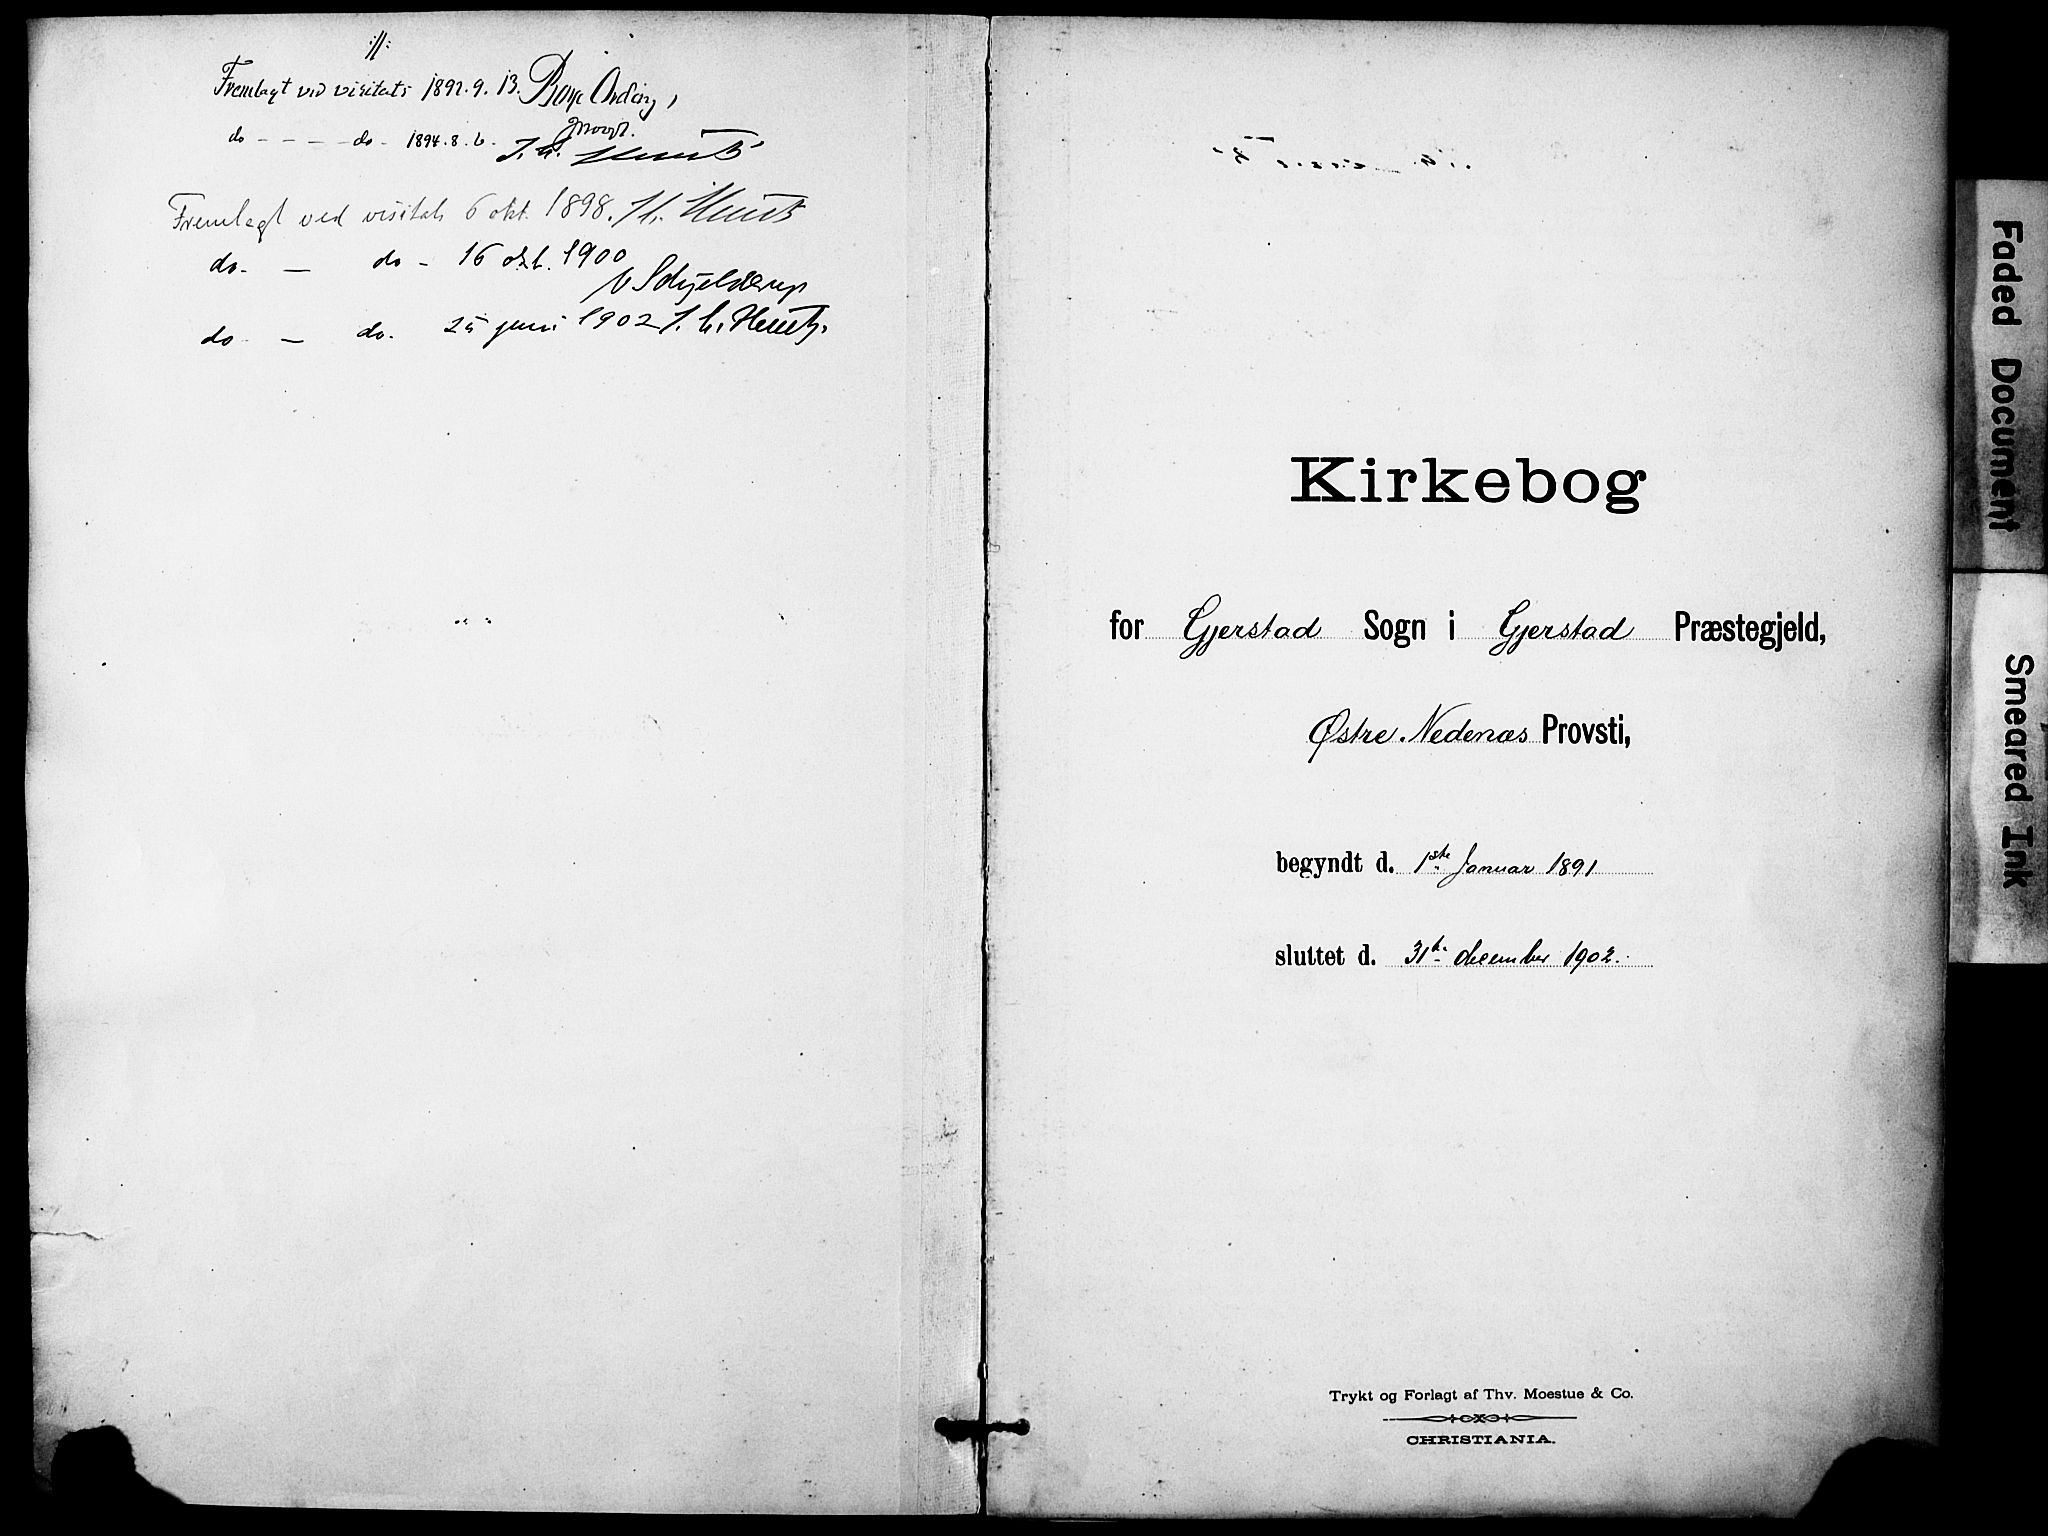 ://:
Fremlagt ved visitats 1892.9.13. Boye Ording,
provst.
do - - - - do - 1894.8.6. J. C. Heuch
Fremlagt ved visitats 6 okt. 1898. H. Heuch
do. - do - 16 okt. 1900
Schjelderup
do - do. 25 juni 1902 J. C. Heuch.
Kirkebog
for Gjerstad Sogn i Gjerstad Præstegjeld,
Østre Nedenæs Provsti,
begyndt d. 1ste Januar 1891
sluttet d. 31te december 1902.
Trykt og Forlagt af Thv. Moestue & Co.
CHRISTIANIA.
Faded Document
Smeared Ink